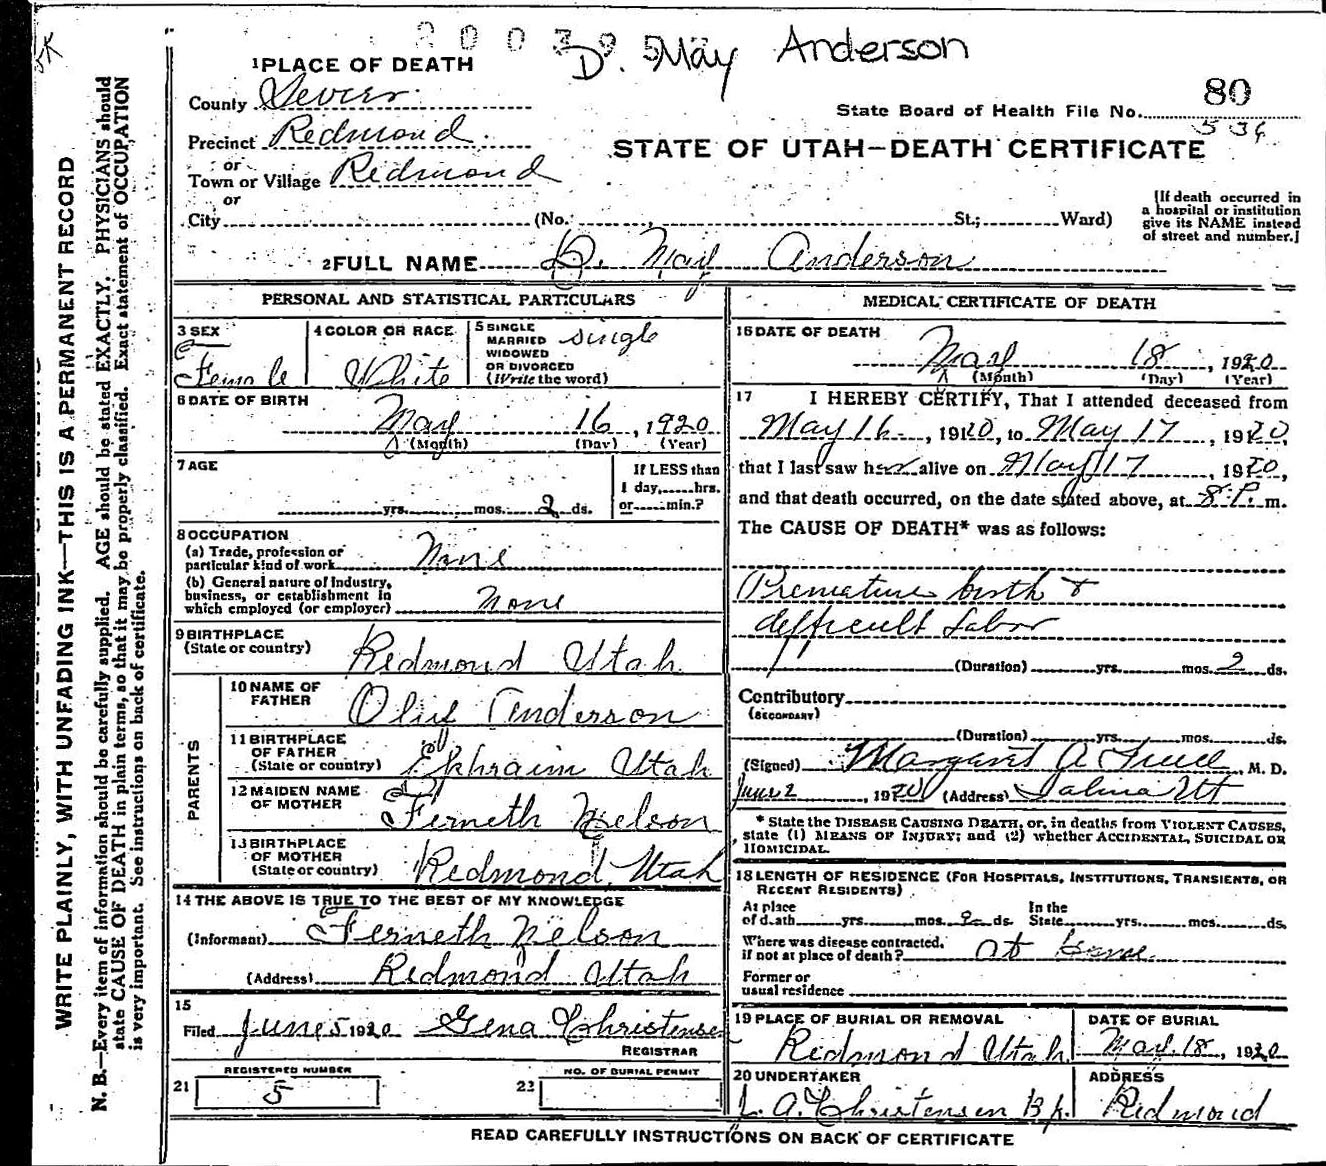 D. May Anderson
1 PLACE OF DEATH
County Sevier
State Board of Health File No. 80
536
Precinct Redmond
or
Town or Village Redmond
or
STATE OF UTAH—DEATH CERTIFICATE
City (No. St.; Ward)
[If death occurred in
a hospital or institution
give its NAME instead
of street and number.]
2 FULL NAME D. May Anderson
PERSONAL AND STATISTICAL PARTICULARS
3 SEX
Female
4 COLOR OR RACE
White
5 SINGLE
MARRIED
WIDOWED
OR DIVORCED
(Write the word)
single
6 DATE OF BIRTH
May 16, 1920
(Month) (Day) (Year)
7 AGE
yrs. mos. 2 ds.
If LESS than
1 day, hrs.
or min.?
8 OCCUPATION
(a) Trade, profession or
particular kind of work None
(b) General nature of Industry,
business, or establishment in
which employed (or employer) None
9 BIRTHPLACE
(State or country) Redmond Utah
PARENTS
10 NAME OF
FATHER Anderson
11 BIRTHPLACE
OF FATHER
(State or country) Ephraim Utah
12 MAIDEN NAME
OF MOTHER Ferneth Nielson
13 BIRTHPLACE
OF MOTHER
(State or country) Redmond, Utah
14 THE ABOVE IS TRUE TO THE BEST OF MY KNOWLEDGE
(Informant) Ferneth Nelson
(Address) Redmond Utah
15
Filed June 5 1920 Gena Christensen
REGISTRAR
REGISTERED NUMBER
21 5
NO. OF BURIAL PERMIT
22
MEDICAL CERTIFICATE OF DEATH
16 DATE OF DEATH
May 18, 1920
(Month) (Day) (Year)
17 I HEREBY CERTIFY, That I attended deceased from
May 16, 1920, to May 17, 1920,
that I last saw her alive on May 17, 1920,
and that death occurred, on the date stated above, at 8 P. m.
The CAUSE OF DEATH* was as follows:
Premature birth &
difficult Labor
(Duration) yrs. mos. 2 ds.
Contributory
(SECONDARY)
(Duration) yrs. mos. ds.
(Signed) Margaret A. M. D.
June 2, 1920 (Address) Salina Ut
* State the DISEASE CAUSING DEATH, or, in deaths from VIOLENT CAUSES,
state (1) MEANS OF INJURY; and (2) whether ACCIDENTAL, SUICIDAL OR
HOMICIDAL.
18 LENGTH OF RESIDENCE (FOR HOSPITALS, INSTITUTIONS, TRANSIENTS, OR
RECENT RESIDENTS)
At place
of death yrs. mos. 2 ds.
In the
State yrs. mos. ds.
Where was disease contracted,
if not at place of death? at home
Former or
usual residence
19 PLACE OF BURIAL OR REMOVAL
Redmond Utah
DATE OF BURIAL
May 18, 1920
20 UNDERTAKER
A. Christensen Bp.
ADDRESS
Redmond
READ CAREFULLY INSTRUCTIONS ON BACK OF CERTIFICATE
WRITE PLAINLY, WITH UNFADING INK—THIS IS A PERMANENT RECORD
N. B.—Every item of information should be carefully supplied. AGE should be stated EXACTLY. PHYSICIANS should
state CAUSE OF DEATH in plain terms, so that it may be properly classified. Exact statement of OCCUPATION
is very important. See instructions on back of certificate.